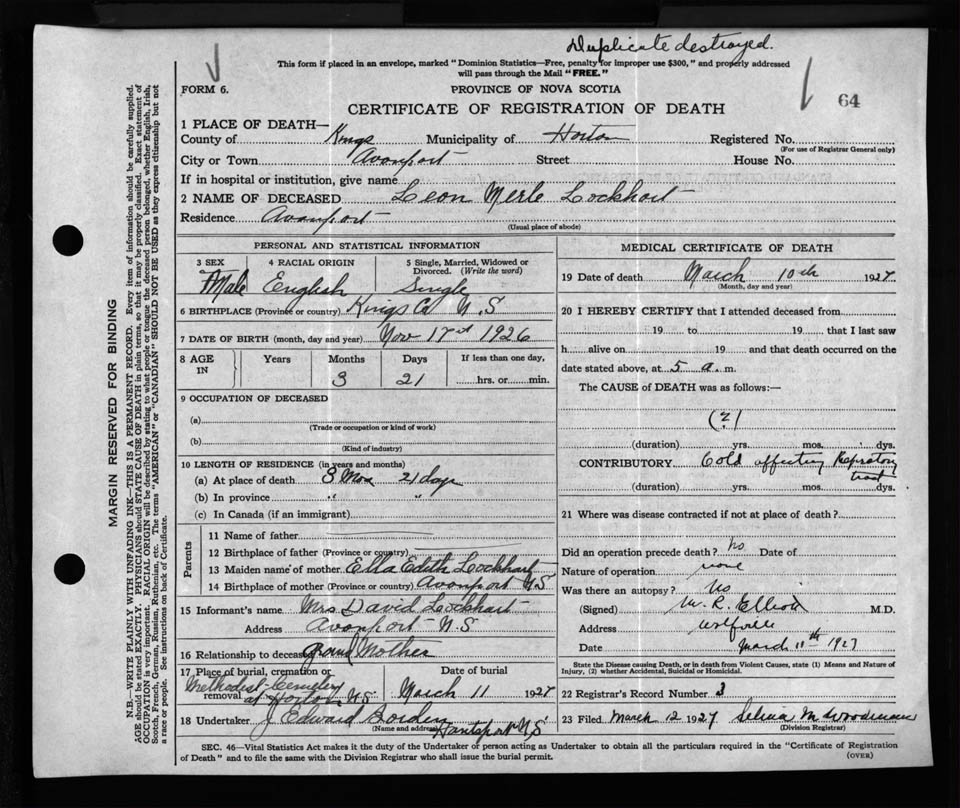 Duplicate destroyed.
This form if placed in an envelope, marked "Dominion Statistics—Free, penalty for improper use $300," and properly addressed
will pass through the Mail "FREE."
FORM 6.
PROVINCE OF NOVA SCOTIA
64
CERTIFICATE OF REGISTRATION OF DEATH
1 PLACE OF DEATH—
County of Kings Municipality of Horton Registered No.
(For use of Registrar General only)
City or Town Avonport Street House No.
If in hospital or institution, give name
2 NAME OF DECEASED Leon Merle Lockhart
Residence Avonport
(Usual place of abode)
PERSONAL AND STATISTICAL INFORMATION
3 SEX 4 RACIAL ORIGIN 5 Single, Married, Widowed or
Divorced. (Write the word)
Male English Single
6 BIRTHPLACE (Province or country) Kings Co N.S
7 DATE OF BIRTH (month, day and year) Nov 17 1926
8 AGE IN Years Months Days If less than one day,
3 21 hrs. or min.
9 OCCUPATION OF DECEASED
(a)
(Trade or occupation or kind of work)
(b)
(Kind of industry)
10 LENGTH OF RESIDENCE (in years and months)
(a) At place of death 3 Mos 21 days
(b) In province " "
(c) In Canada (if an immigrant)
Parents
11 Name of father
12 Birthplace of father (Province or country)
13 Maiden name of mother Ella Edith Lockhart
14 Birthplace of mother (Province or country) Avonport N.S
15 Informant's name Mrs David Lockhart
Address Avonport N.S
16 Relationship to deceased Grand Mother
17 Place of burial, cremation or Date of burial
removal Methodist Cemetery
at Horton N.S. March 11 1927
18 Undertaker J Edward Borden
(Name and address) Hantsport N.S
MEDICAL CERTIFICATE OF DEATH
19 Date of death March 10th 1927.
(Month, day and year)
20 I HEREBY CERTIFY that I attended deceased from
19 to 19 that I last saw
h alive on 19 and that death occurred on the
date stated above, at 5 a. m.
The CAUSE of DEATH was as follows:—
(?)
(duration) yrs. mos. dys.
CONTRIBUTORY Cold affecting Respiratory
tract
(duration) yrs. mos. dys.
21 Where was disease contracted if not at place of death?
Did an operation precede death? No Date of
Nature of operation none
Was there an autopsy? No
(Signed) M. R. Elliott M.D.
Address Wolfville
Date March 11th 1927
State the Disease causing Death, or in death from Violent Causes, state (1) Means and Nature of
Injury, (2) whether Accidental, Suicidal or Homicidal.
22 Registrar's Record Number 3
23 Filed March 12 1927 Selina M Woodman
(Division Registrar)
SEC. 46—Vital Statistics Act makes it the duty of the Undertaker or person acting as Undertaker to obtain all the particulars required in the "Certificate of Registration
of Death" and to file the same with the Division Registrar who shall issue the burial permit.
(OVER)
MARGIN RESERVED FOR BINDING
N.B.—WRITE PLAINLY WITH UNFADING INK—THIS IS A PERMANENT RECORD. Every item of information should be carefully supplied.
AGE should be stated EXACTLY. PHYSICIANS should STATE CAUSE OF DEATH in plain terms, so that it may be properly classified. Exact statement of
OCCUPATION is very important. RACIAL ORIGIN will be described by stating to what people or tongue the deceased person belonged, whether English, Irish,
Scotch, French, German, Russian, Ruthenian, etc. The terms "AMERICAN" or "CANADIAN" SHOULD NOT BE USED as they express citizenship but not
a race or people. See instructions on back of Certificate.